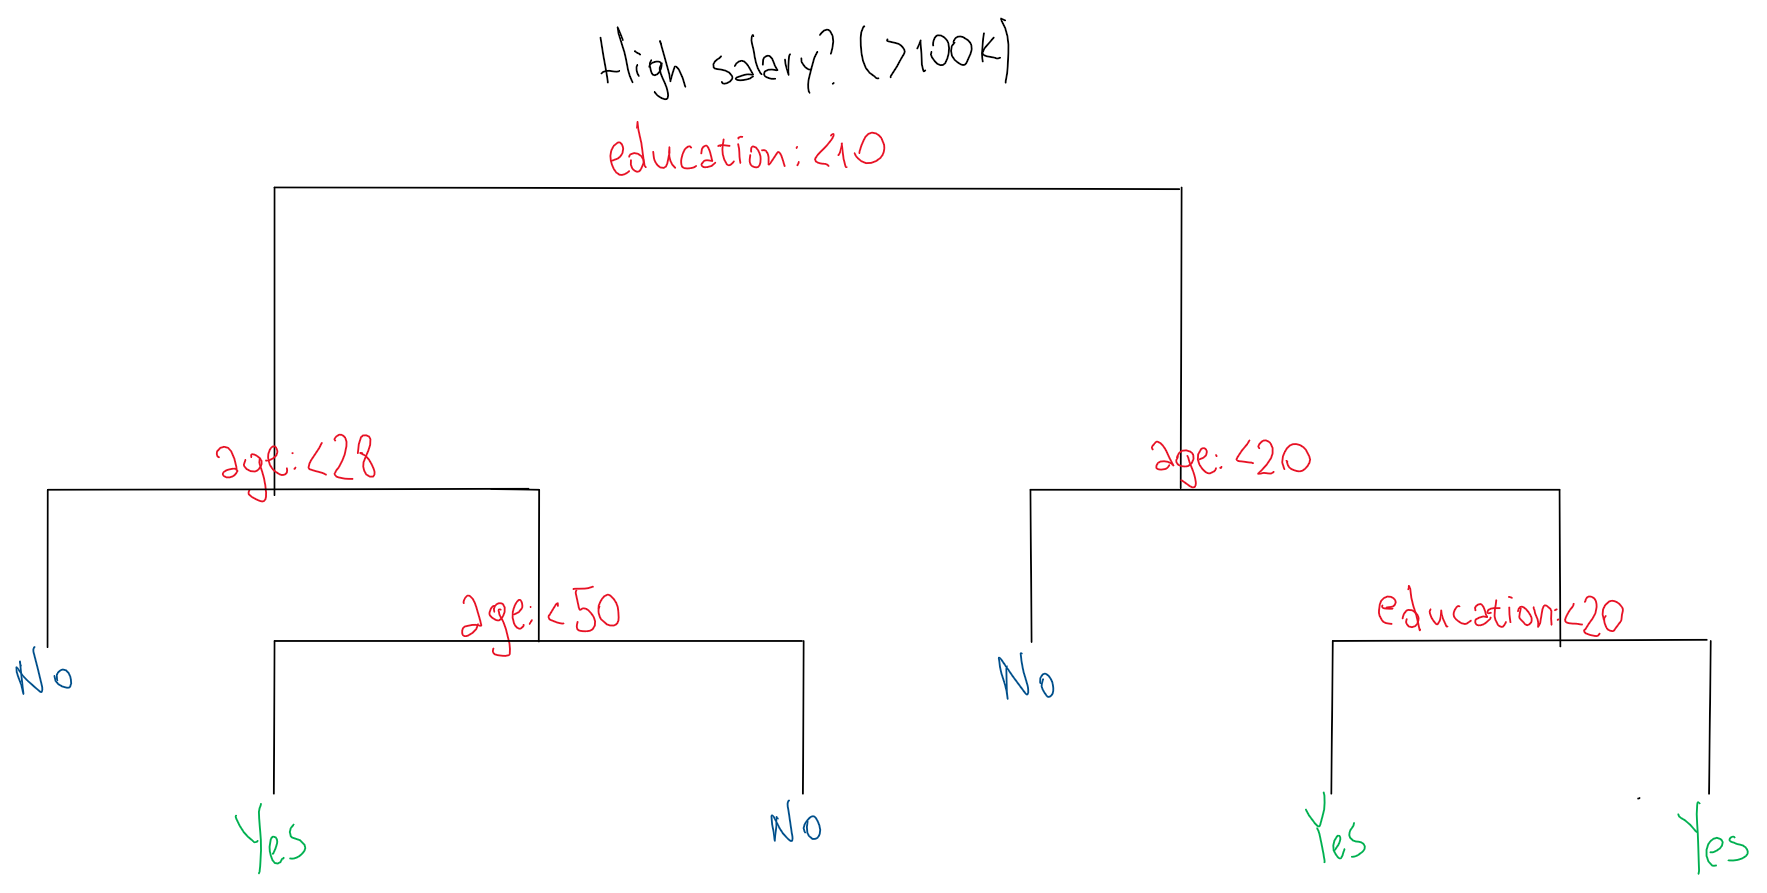 High salary? (>100K)
education: <10
age: <28
age: <20
age: <50
education: <20
No
No
Yes
No
Yes
Yes